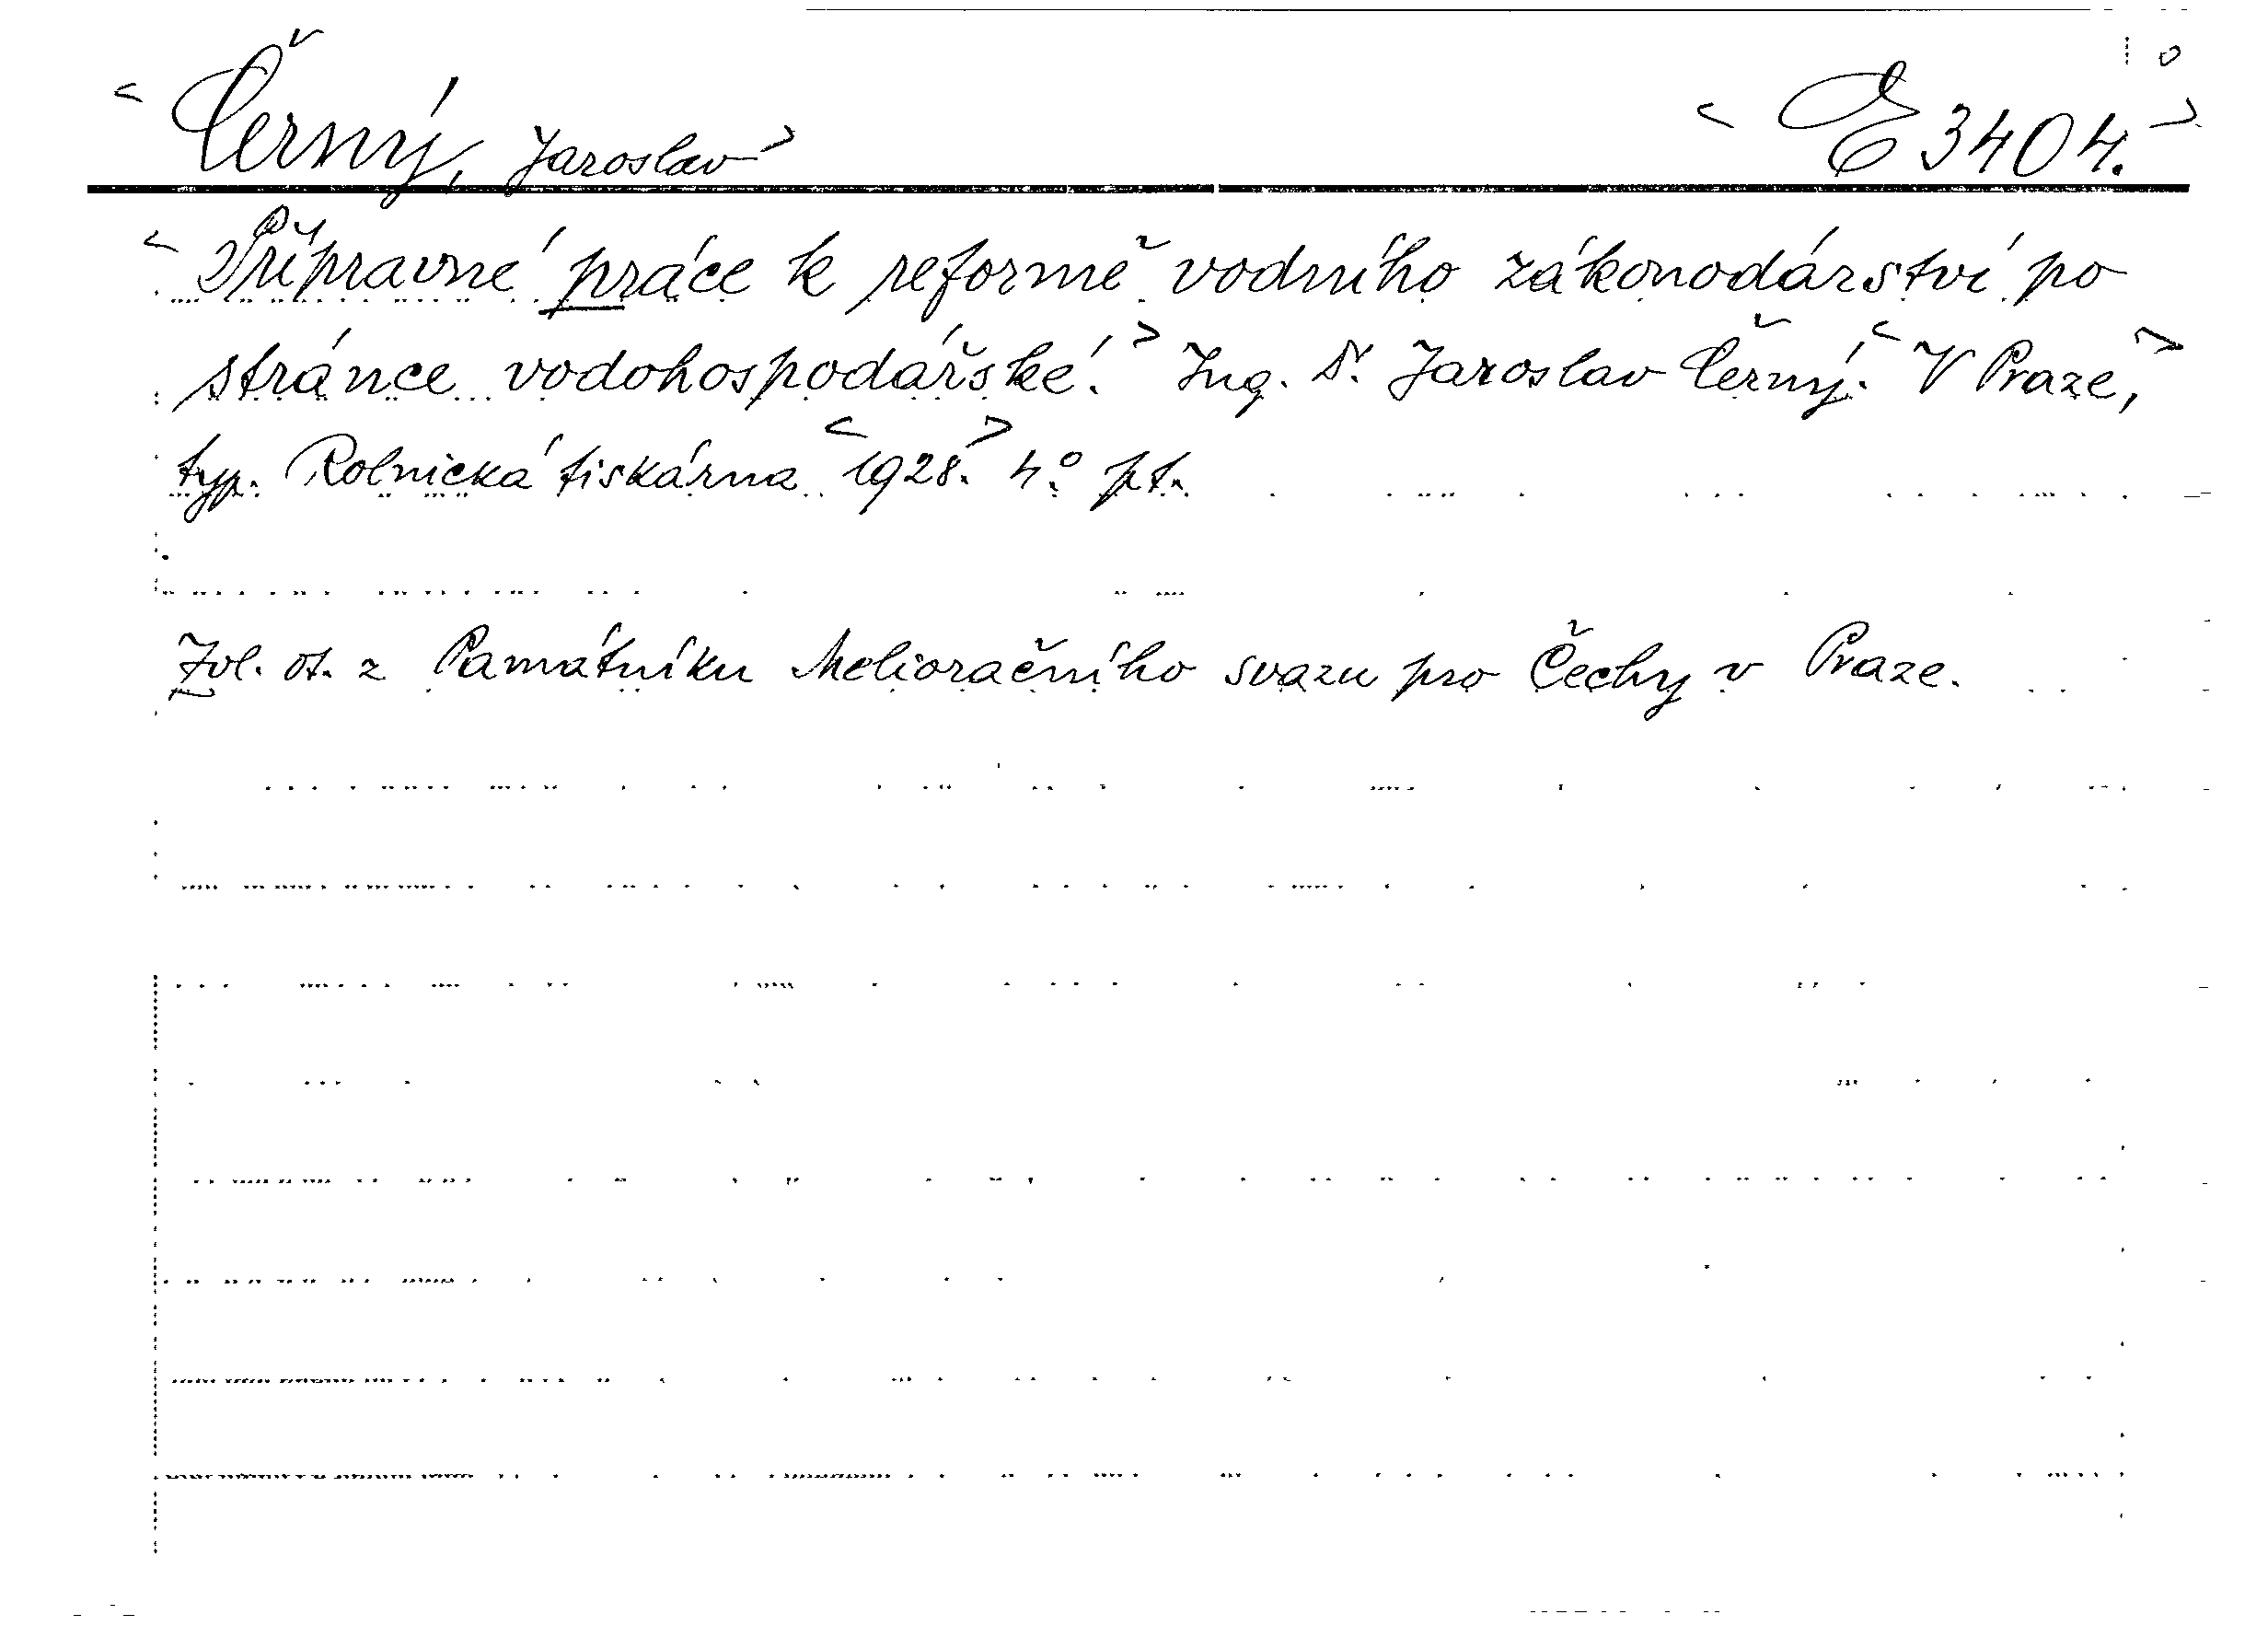 < Černý, Jaroslav > < E 3404. >
< Přípravné práce k reformě vodního zákonodárství po
stránce vodohospodářské. > Ing. Dr. Jaroslav Černý. < V Praze, >
typ. Rolnická tiskárna < 1928. > 4.° pt.
Zvl. ot. z Památníku Melioračního svazu pro Čechy v Praze.